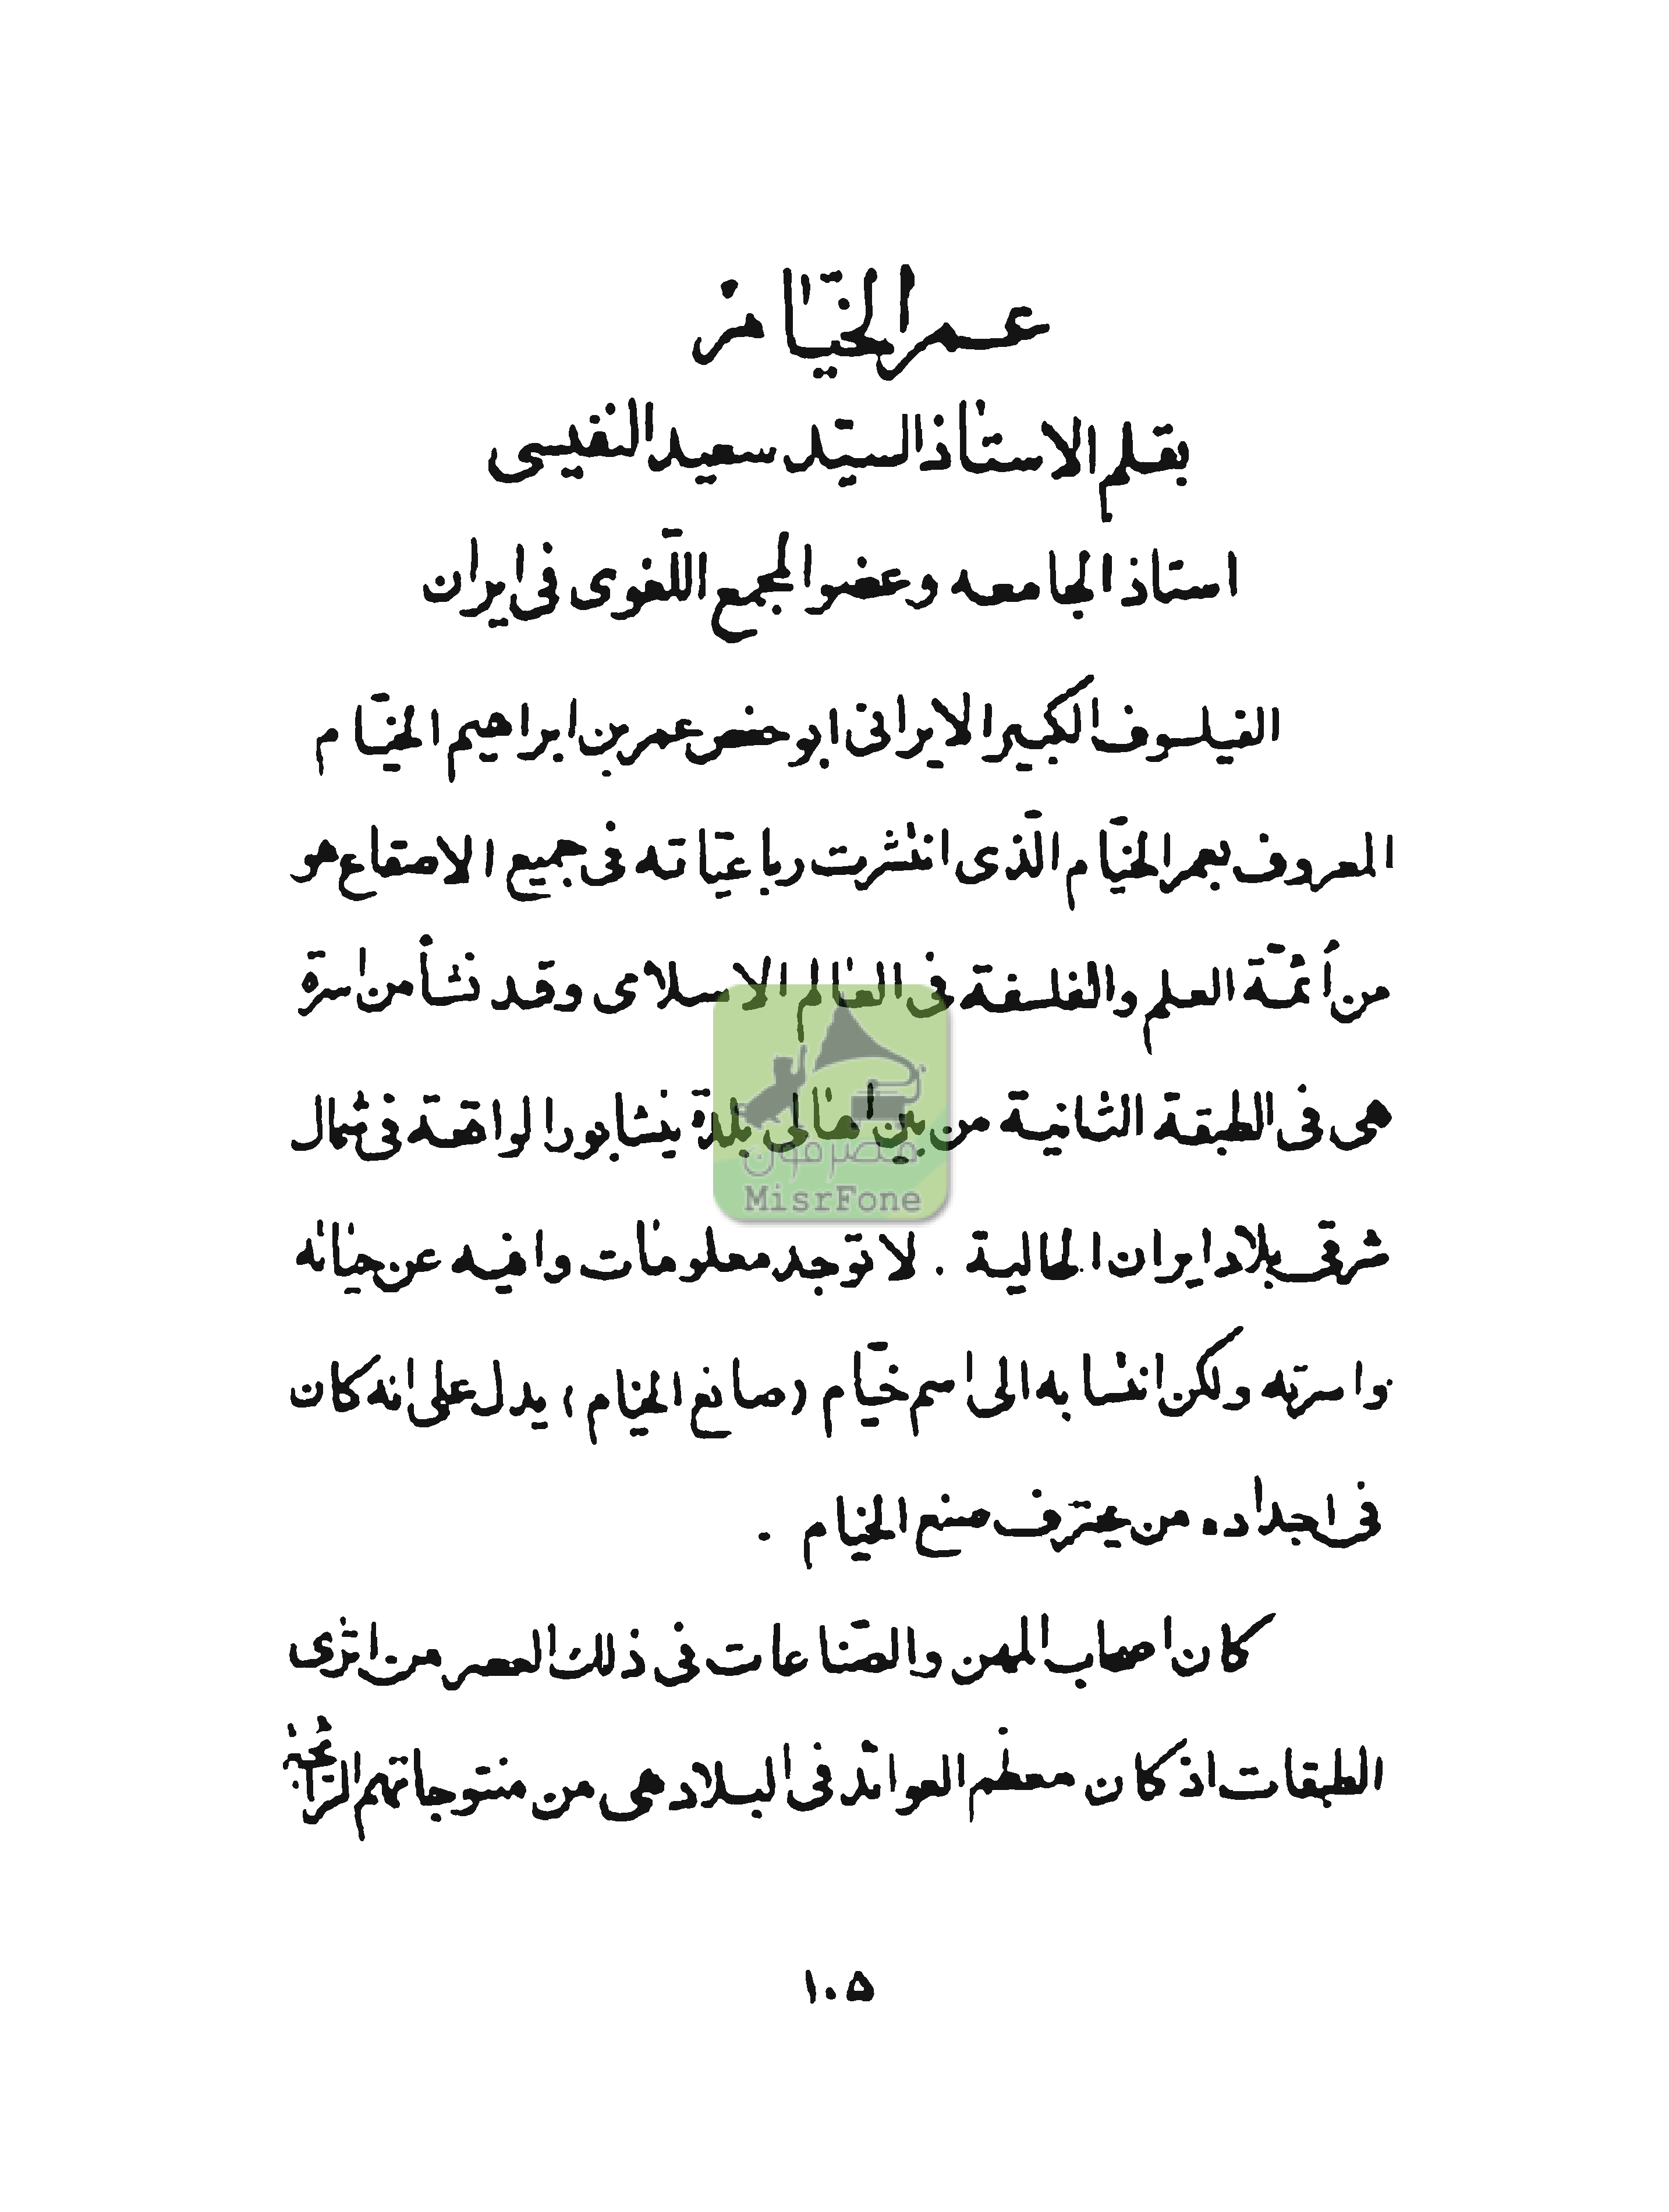 عمر الخيّام
بقلم الاستاذ السيّد سعيد النفيسى
استاذ الجامعه وعضو المجمع اللّغوى فى ايران
الفيلسوف الكبير الايرانى ابو حفص عمر بن ابراهيم الخيّام
المعروف بعمر الخيّام الّذى انتشرت رباعيّاته فى جميع الاصقاع هو
من أئمّة العلم والفلسفة فى العالم الاسلامى وقد نشأ من اسرة
هى فى الطبقة الثانية من بين اهالى بلدة نيشابور الواقعة فى شمال
شرقى بلاد ايران الحالية . لا توجد معلومات وافيه عن حياته
واسرته ولكن انتسابه الى اسم خيّام (صانع الخيام) يدل على انه كان
فى اجداده من يحترف صنع الخيام .
كان اصحاب المهن والصّناعات فى ذلك العصر من اثرى
الطبقات اذ كان معظم العوائد فى البلاد هى من منتوجاتهم الرّائجة
١٠۵
مصرفون
MisrFone